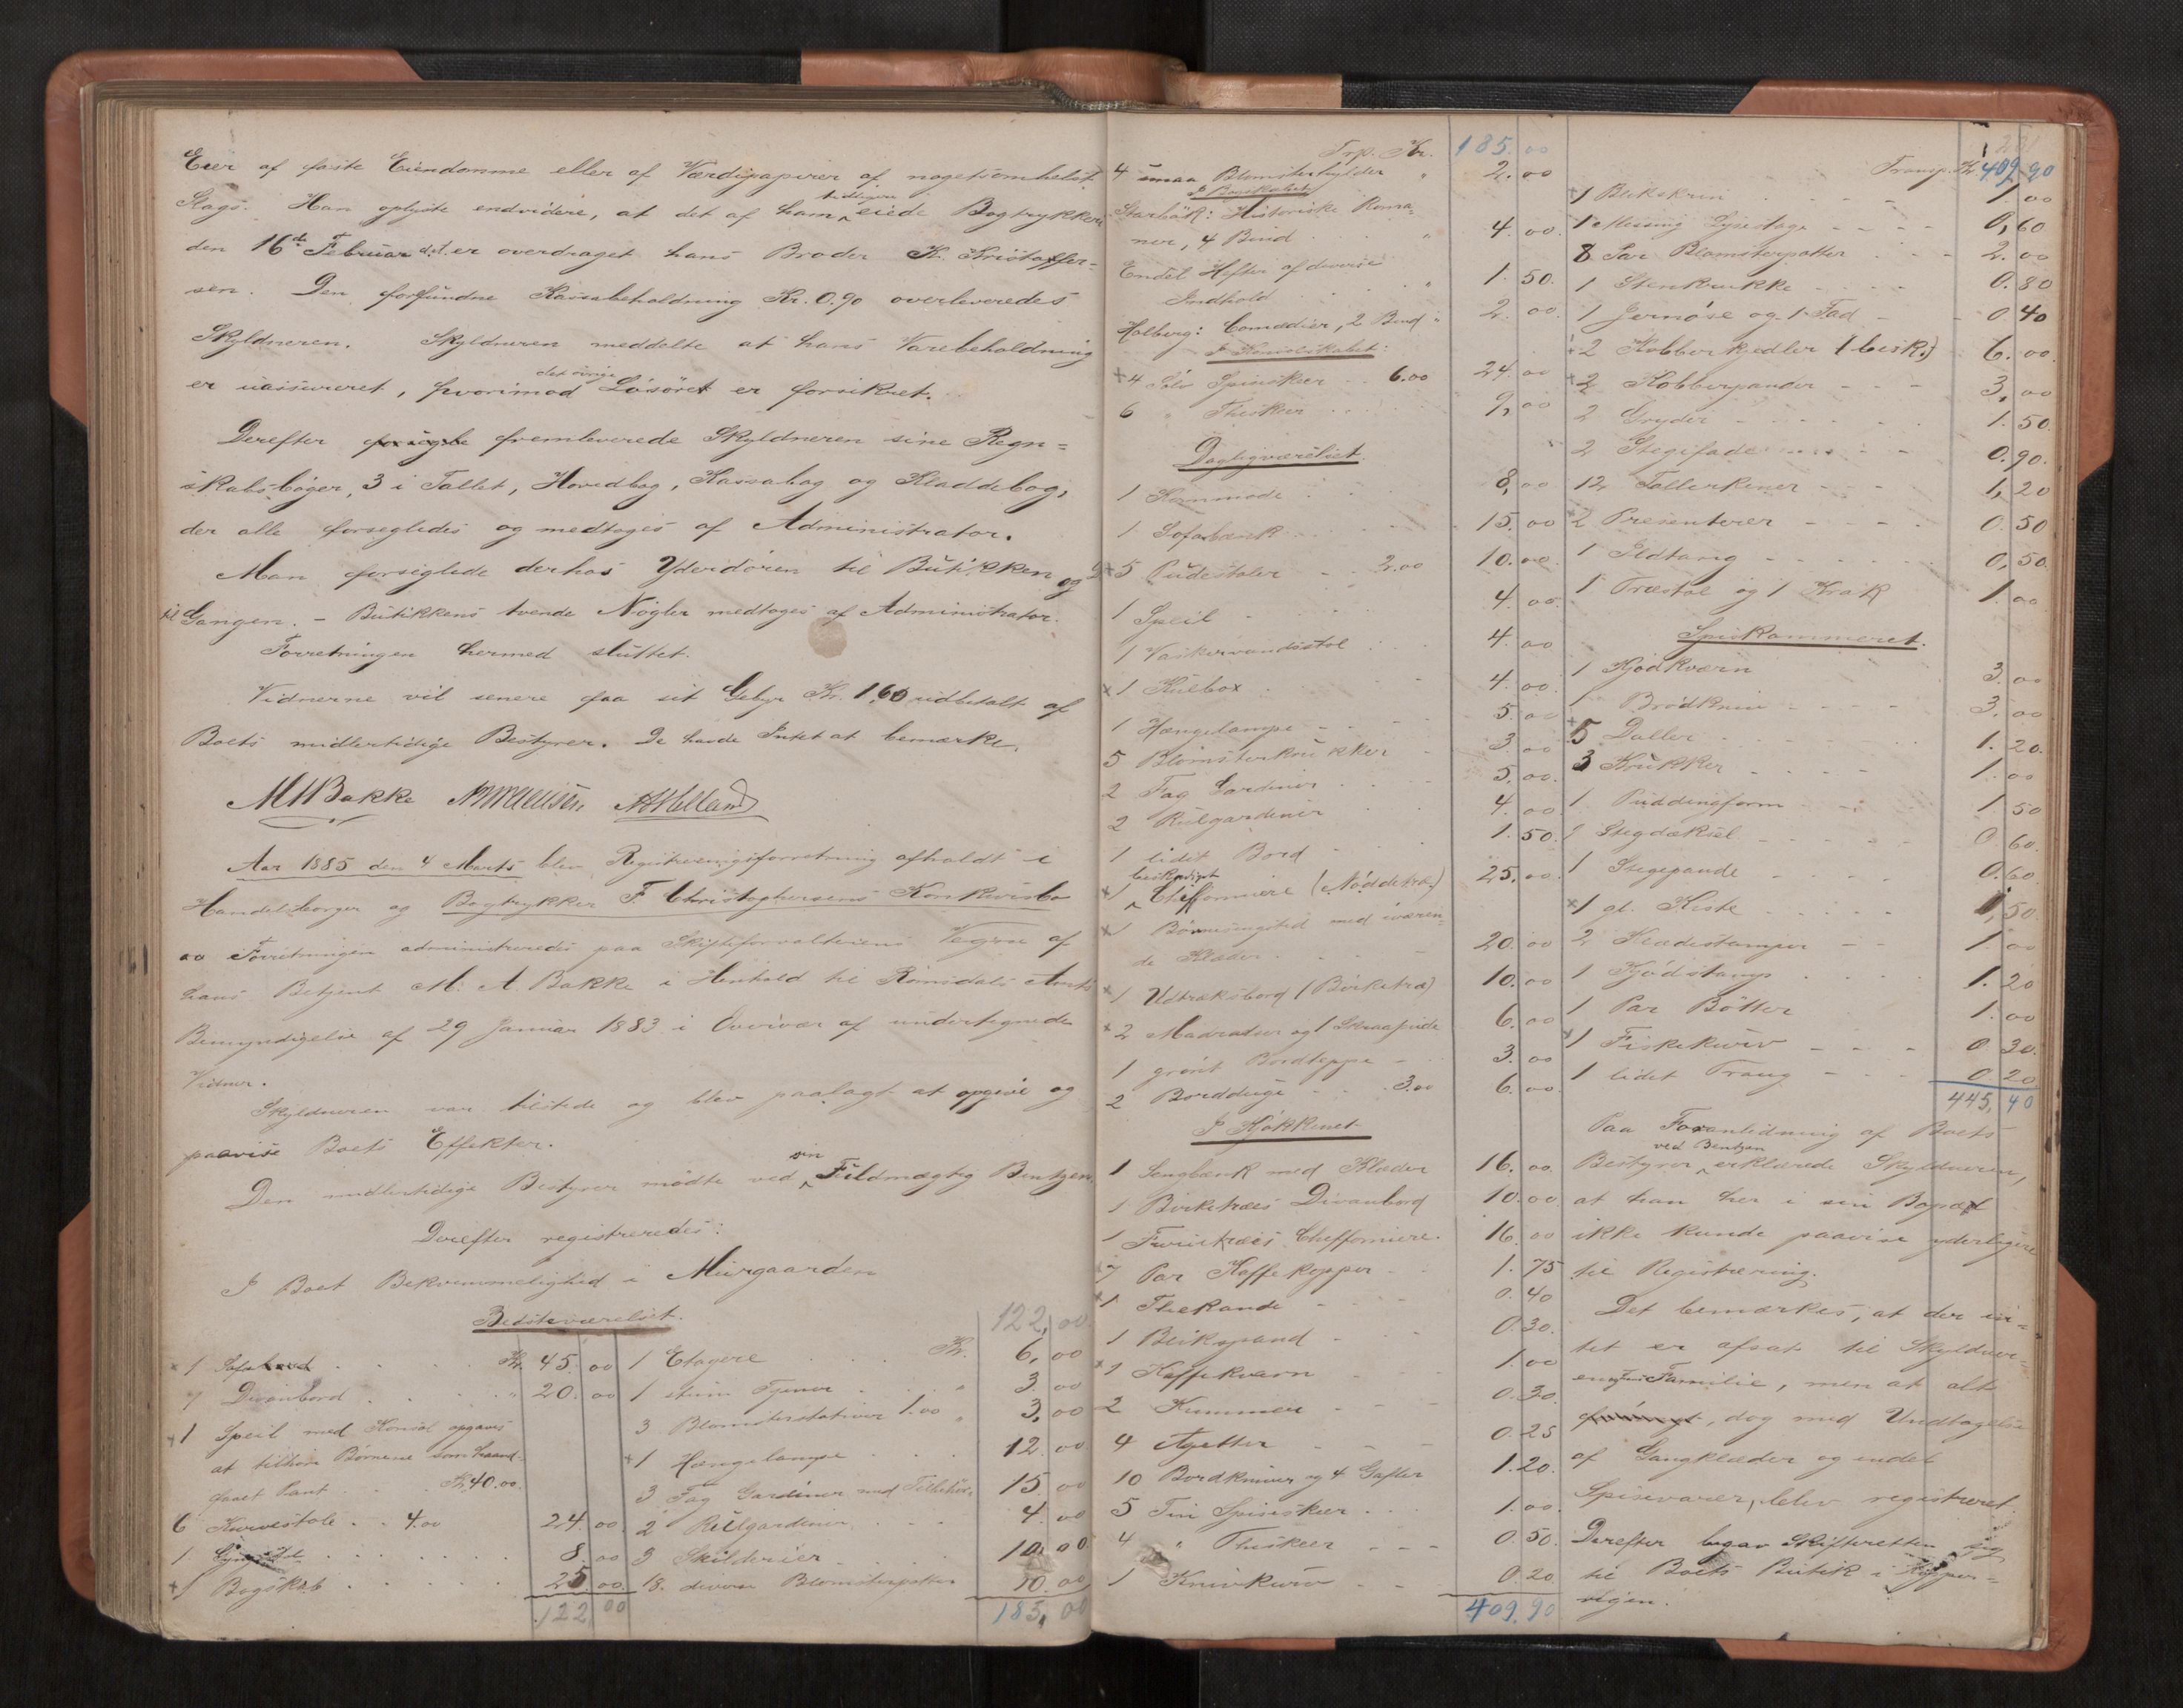 Eier af faste Eiendomme eller af Værdipapirer af nogetsomhelst
Slags. Han oplyste endvidere, at det af ham tidligere eiede Bogtrykkeri
den 16de Februar d.A. er overdraget hans Broder K. Kristoffer-
sen. Den forefundne Kassabeholdning Kr. 0.90 overleveredes
Skyldneren. Skyldneren meddelte at hans Varebeholdning
er uassureret, hvorimod det øvrige Løsøret er forsikret.
Derefter fremleverede Skyldneren sine Regn=
skabsbøger, 3 i Tallet, Hovedbog, Kassabog og Kladdebog,
der alle forsegledes og medtoges af Administrator.
Man forseglede derhos Yderdøren til Butikken og
til Gangen. - Butikkens tvende Nøgler medtoges af Administrator.
Forretningen hermed sluttet.
Vidnerne vil senere faa sit Gebyr Kr. 1,60 udbetalt af
Boets midlertidige Bestyrer. De havde Intet at bemærke.
MABakke
Aar 1885 den 4 Marts blev Registreringsforretning afholdt i
Handelsborger og Bogtrykker F. Christophersens Konkursbo
og Forretningen administreredes paa Skifteforvalterens Vegne af
hans Betjent M. A. Bakke i Henhold til Romsdals Amts
Bemyndigelse af 29 Januar 1883 i Overvær af undertegnede
Vidner.
Skyldneren var tilstede og blev paalagt at opgive og
paavise Boets Effekter.
Den midlertidige Bestyrer mødte ved sin Fuldmægtig Bentzen.
Derefter registreredes:
I Boet Bekvemmelighed i Murgaarden
Bedsteværelset.
1 Kr. 45.00
1 Divanbord " 20.00
1 Speil med Konsol opgaves
at tilhøre Børnene som haand-
faaet Pant Kr. 40.00
6 Kurvestole 4.00 24.00
1 8.00
1 Bogskab 25.00
122 00
122,00
1 Etagere Kr. 6,00
1 stum Tjener " 3.00
3 Blomsterstativer 1.00 " 3,00
1 Hængelampe 12.00
3 Fag Gardiner med Tilbehør 15.00
2 Rulgardiner 4.00
3 Skilderier 10.00
18 diverse Blomsterpotter 10.00
185,00
Trp. Kr. 185.00
4 smaa Blomsterhylder " 2.00
I Bogskabet
Starbäk: Historiske Roma-
ner, 4 Bind " 4.00
Endel Hefter af diverse
Indhold " 1.50
Holberg: Comedier, 2 Bind " 2.00
4 Sølv Spiseskeer 6.00 24.00
6 " Theskeer 9,00
Dagligværelset
1 Kommode 8,00
1 Sofabænk 15.00
5 Pudestoler 2.00 10.00
1 Speil 4.00
1 Vaskervandsstol 4.00
1 Kulbox 4.00
1 Hængelampe 5.00
5 Blomsterkrukker 3.00
2 Fag Gardiner 5.00
2 Rulgardiner 4.00
1 lidet Bord 1.50
1 beskadiget Chefforniere (Nøddetræ) 25.00
1 Børnesengsted med iværen-
de Klæder 20.00
1 Udtræksbord (Birketræ) 10.00
2 Madratser og 1 Skraapude 6.00
1 grønt Bordteppe 3.00
2 Bordduge 3.00 6.00
I Kjøkkenet
1 Sengbænk med Klæder 16.00
1 Birketræes Divanbord 10.00
1 Furutræes Chefforniere 16.00
7 Par Kaffekopper 1.75
1 Thekande 0.40
1 Blikspand 0.30
1 Kaffekværn 1.00
2 Kummer 0.30
4 Asjetter 0.25
10 Bordkniver og 4 Gafler 1.20
5 Tin Spiseskeer 1.00
4 " Theskeer 0.50
1 Knivkurv 0.20
409.90
Transp. Kr. 409.90
1 Blikskrin 1.00
1 Messing Lysestage 0,60
8 Par Blomsterpotter 2.00
1 Stenkrukke 0.80
1 Jernøse og 1 Fad 0.40
2 Kobberkjedler (besk.) 6.00
2 Kobberpander 3,00
2 Gryder 1.50
2 Stegefade 0.90
12 Tallerkener 1,20
2 Presenterer 0.50
1 Ildtang 0,50
1 Træstol og 1 Krak 1.00
Spiskammeret.
1 Kjødkværn 3.00
1 Brødkniv 3.00
5 Daller 1.20
3 Krukker 1.00
1 Puddingform 1.50
1 Stegdæksel 0.60
1 Stegepande 0.60
1 gl. Kiste 1,50
2 Klædestamper 1.00
1 Kjødstamp 1.20
1 Par Bøtter 1.00
1 Fiskekurv 0.30
1 lidet Traug 0.20
445,40
Paa Foranledning af Boets
Bestyrer ved Bentzen erklærede Skyldneren,
at han her i sin Bopæl
ikke kunde paavise yderligere
til Registrering.
Det bemærkes, at der in-
tet er afsat til Skyldner-
en og hans Familie, men at alt
dog med Undtagelse
af Gangklæder og endel
Spisevarer, blev registreret.
Derefter begav Skifteretten sig
til Boets Butik i
vigen.